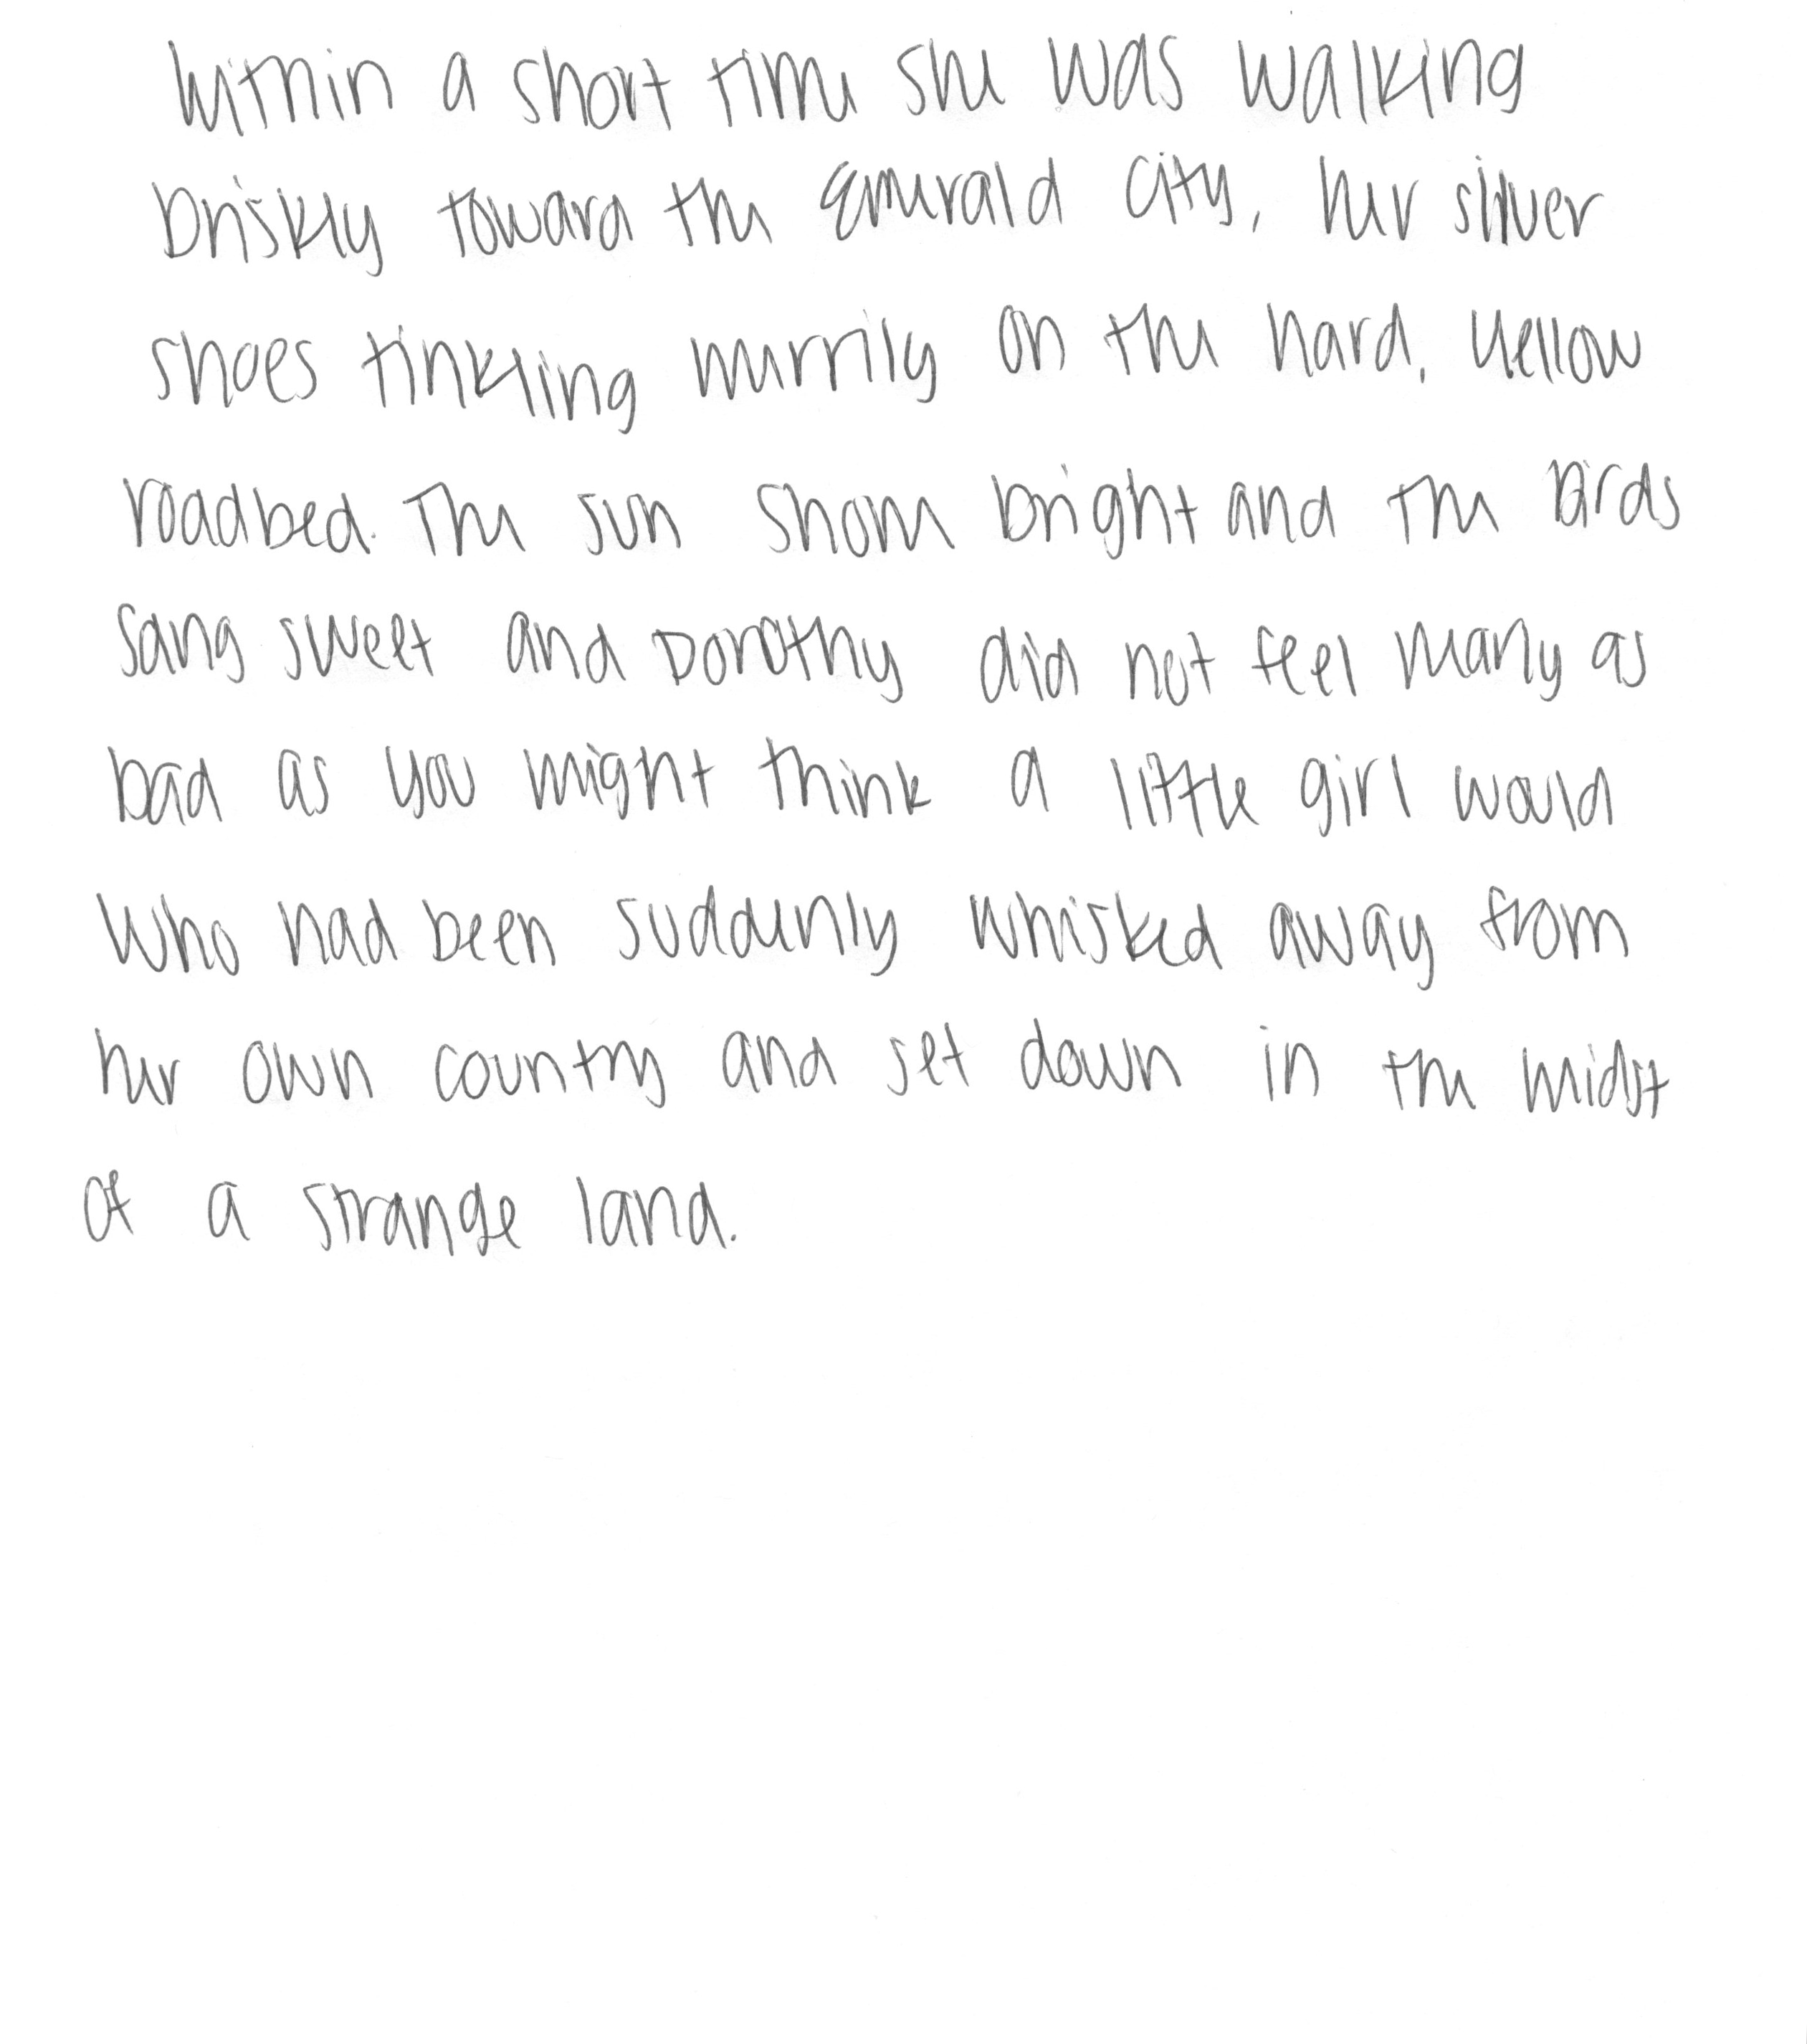 Within a short time she was walking
briskly toward the Emerald City, her silver
shoes tinkling merrily on the hard, yellow
roadbed. The sun shone bright and the birds
sang sweet and Dorothy did not feel many as
bad as you might think a little girl would
who had been suddenly whisked away from
her own country and set down in the midst
of a strange land.